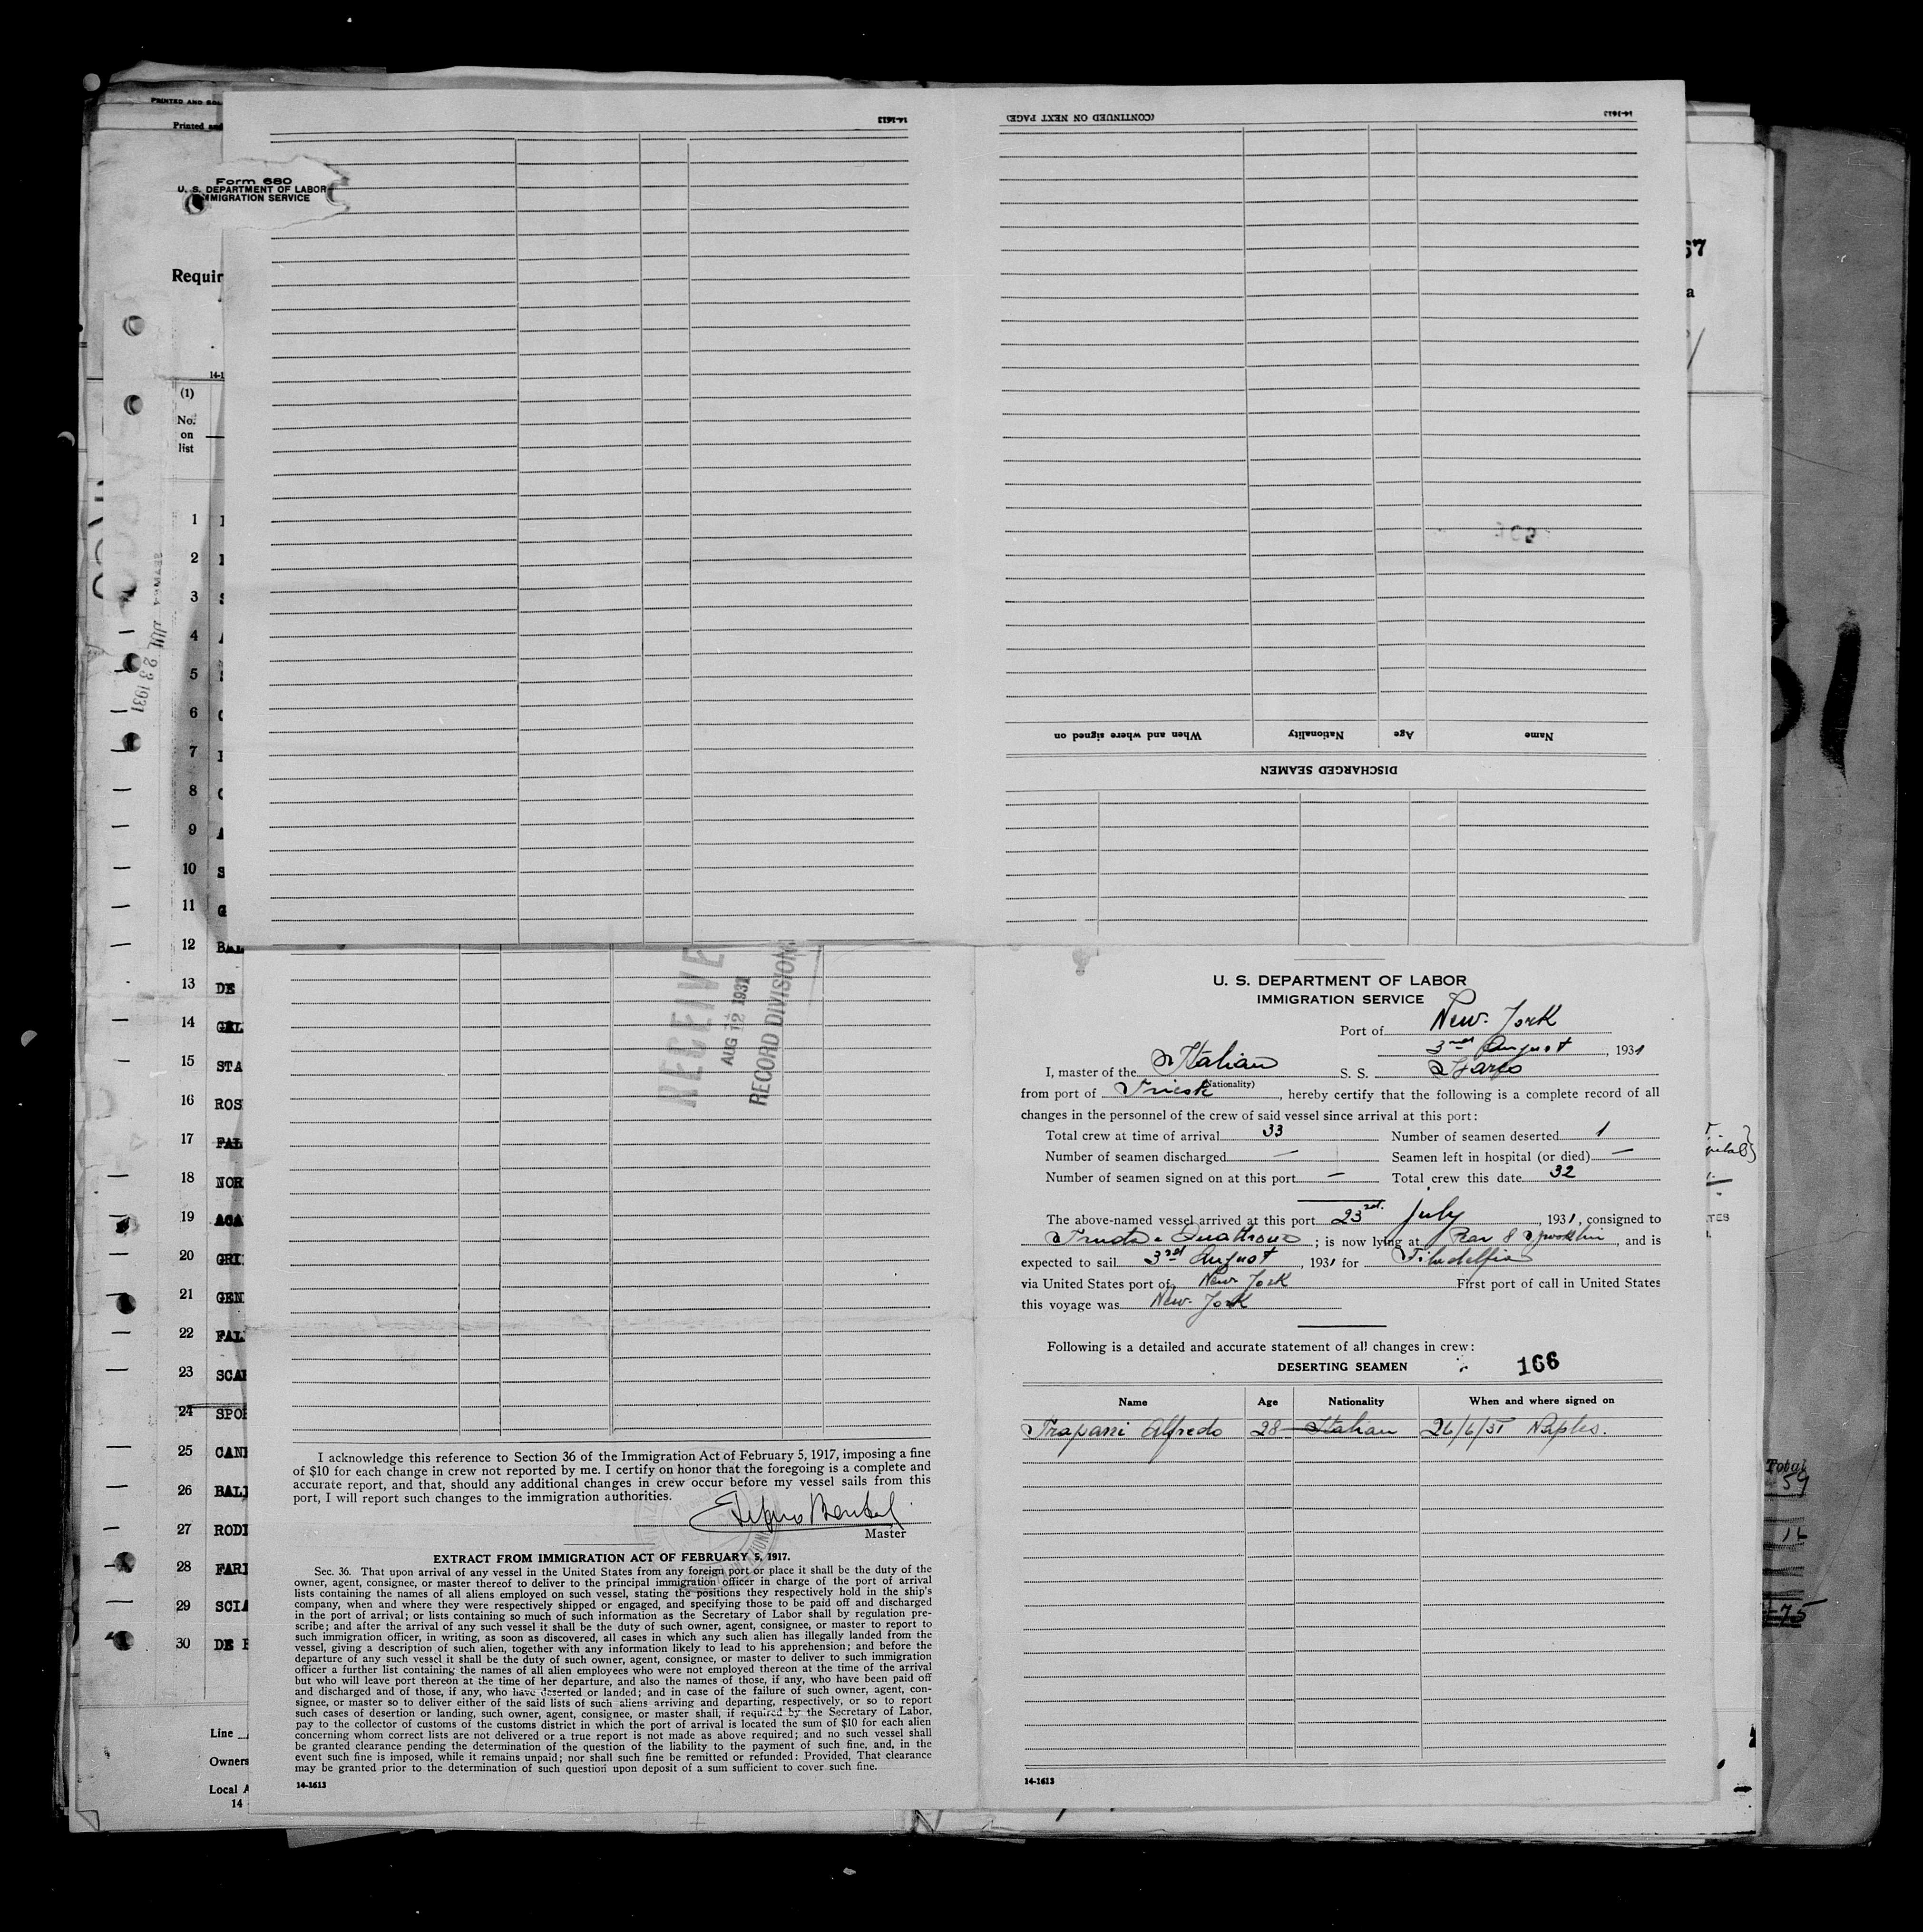 PRINTED AND
Printed and
Form 680
U. S. DEPARTMENT OF LABOR
IMMIGRATION SERVICE
Requir
14-1
(1)
No.
on
list
1
2
3
4
5
6
7
8
9
10 S
11 G
12 BAL
13 DE
14 GAL
15 STA
16 ROS
17 PAL
18 NOR
19 ACA
20 GRI
21 GEN
22 PAL
23 SCAR
24 SPO
25 CAN
26 BAL
27 RODI
28 FARI
29 SCIA
30 DE
Line
Owners
Local A
14
JUL 23 1931
14-1613
(CONTINUED ON NEXT PAGE)
14-1613
Name Age Nationality When and where signed on
DISCHARGED SEAMEN
67
a
RECEIVE
AUG 12 1931
RECORD DIVISION
I acknowledge this reference to Section 36 of the Immigration Act of February 5, 1917, imposing a fine
of $10 for each change in crew not reported by me. I certify on honor that the foregoing is a complete and
accurate report, and that, should any additional changes in crew occur before my vessel sails from this
port, I will report such changes to the immigration authorities.
Master
EXTRACT FROM IMMIGRATION ACT OF FEBRUARY 5, 1917.
Sec. 36. That upon arrival of any vessel in the United States from any foreign port or place it shall be the duty of the
owner, agent, consignee, or master thereof to deliver to the principal immigration officer in charge of the port of arrival
lists containing the names of all aliens employed on such vessel, stating the positions they respectively hold in the ship's
company, when and where they were respectively shipped or engaged, and specifying those to be paid off and discharged
in the port of arrival; or lists containing so much of such information as the Secretary of Labor shall by regulation pre-
scribe; and after the arrival of any such vessel it shall be the duty of such owner, agent, consignee, or master to report to
such immigration officer, in writing, as soon as discovered, all cases in which any such alien has illegally landed from the
vessel, giving a description of such alien, together with any information likely to lead to his apprehension; and before the
departure of any such vessel it shall be the duty of such owner, agent, consignee, or master to deliver to such immigration
officer a further list containing the names of all alien employees who were not employed thereon at the time of the arrival
but who will leave port thereon at the time of her departure, and also the names of those, if any, who have been paid off
and discharged and of those, if any, who have deserted or landed; and in case of the failure of such owner, agent, con-
signee, or master so to deliver either of the said lists of such aliens arriving and departing, respectively, or so to report
such cases of desertion or landing, such owner, agent, consignee, or master shall, if required by the Secretary of Labor,
pay to the collector of customs of the customs district in which the port of arrival is located the sum of $10 for each alien
concerning whom correct lists are not delivered or a true report is not made as above required; and no such vessel shall
be granted clearance pending the determination of the question of the liability to the payment of such fine, and, in the
event such fine is imposed, while it remains unpaid; nor shall such fine be remitted or refunded: Provided, That clearance
may be granted prior to the determination of such question upon deposit of a sum sufficient to cover such fine.
14-1613
U. S. DEPARTMENT OF LABOR
IMMIGRATION SERVICE
Port of New York
3rd August, 1931
I, master of the Italian S. S.
(Nationality)
from port of Trieste, hereby certify that the following is a complete record of all
changes in the personnel of the crew of said vessel since arrival at this port:
Total crew at time of arrival 33 Number of seamen deserted 1
Number of seamen discharged — Seamen left in hospital (or died) —
Number of seamen signed on at this port — Total crew this date 32
The above-named vessel arrived at this port 23rd. July, 1931, consigned to
; is now lying at Pier 8, and is
expected to sail 3rd August, 1931 for Filadelfia
via United States port of New York First port of call in United States
this voyage was New York
Following is a detailed and accurate statement of all changes in crew:
DESERTING SEAMEN 166
Name Age Nationality When and where signed on
Trapani Alfredo 28 Italian 26/6/31 Naples.
14-1613
Total
59
16
75